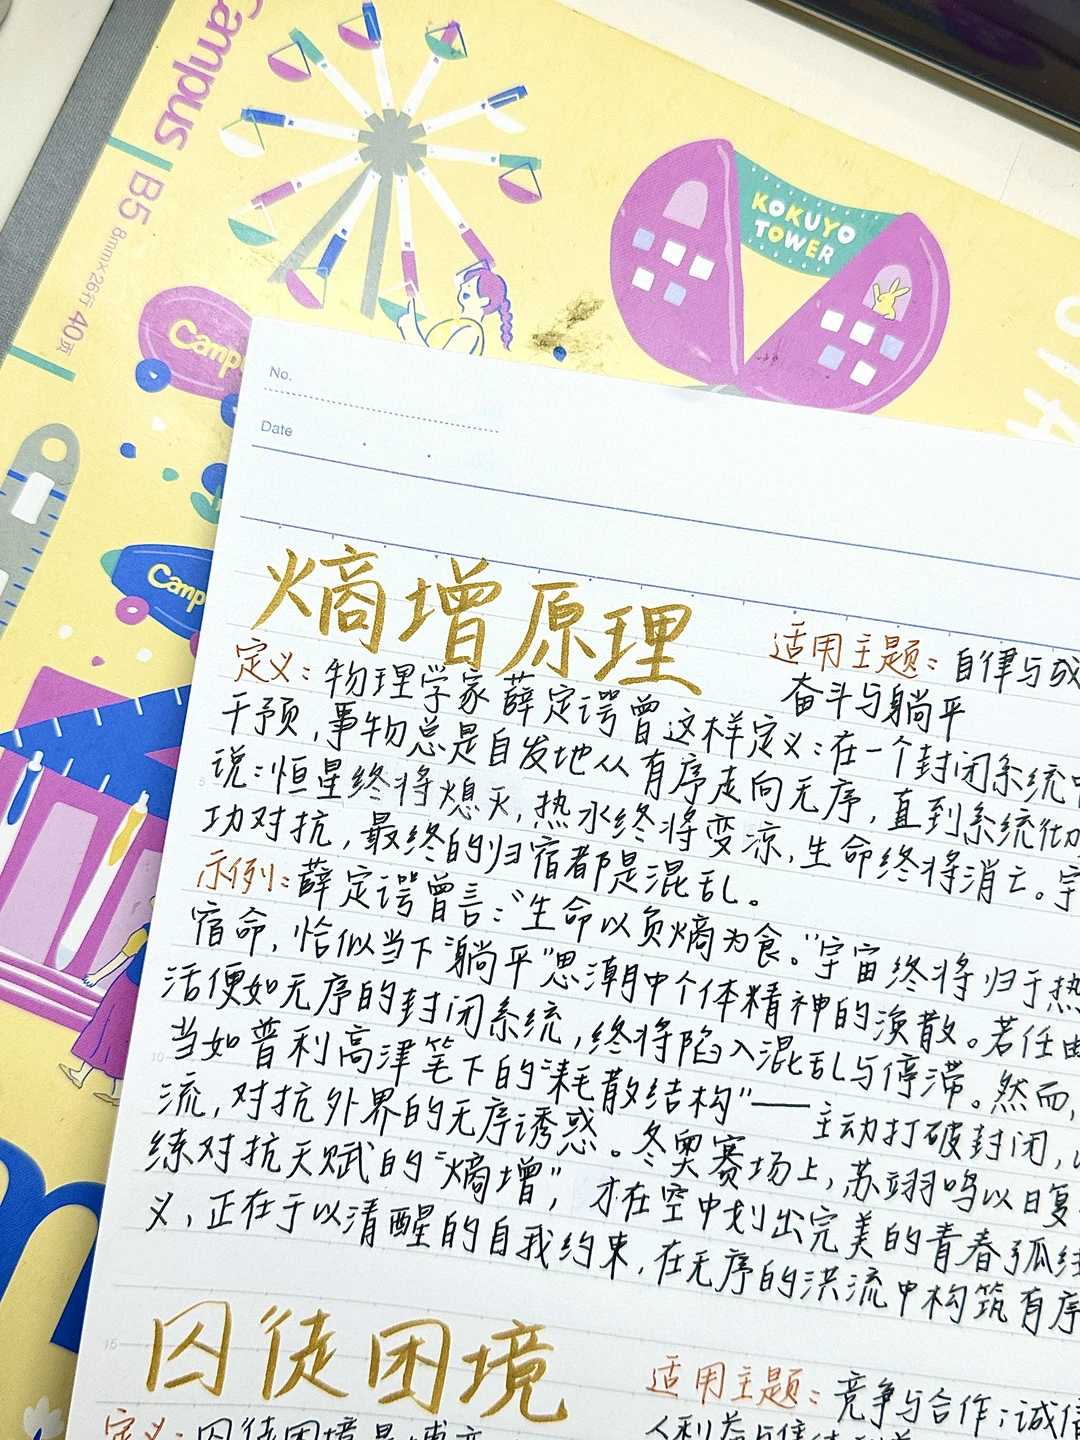 Campus
B5 8mm×26行 40页
KOKUYO
TOWER
Camp
Camp
No.
Date
熵增原理
适用主题：自律与
奋斗与躺平
定义：物理学家薛定谔曾这样定义：在一个封闭系统
干预，事物总是自发地从有序走向无序，直到系统彻
说：恒星终将熄灭，热水终将变凉，生命终将消亡。宇
功对抗，最终的归宿都是混乱。
示例：薛定谔曾言：“生命以负熵为食。”宇宙终将归于热
宿命，恰似当下“躺平”思潮中个体精神的涣散。若任由
活便如无序的封闭系统，终将陷入混乱与停滞。然而，
当如普利高津笔下的“耗散结构”——主动打破封闭，
流，对抗外界的无序诱惑。冬奥赛场上，苏翊鸣以日复
练对抗天赋的“熵增”，才在空中划出完美的青春弧线
义，正在于以清醒的自我约束，在无序的洪流中构筑有序
囚徒困境
适用主题：竞争与合作；诚信
定义：囚徒困境是博弈